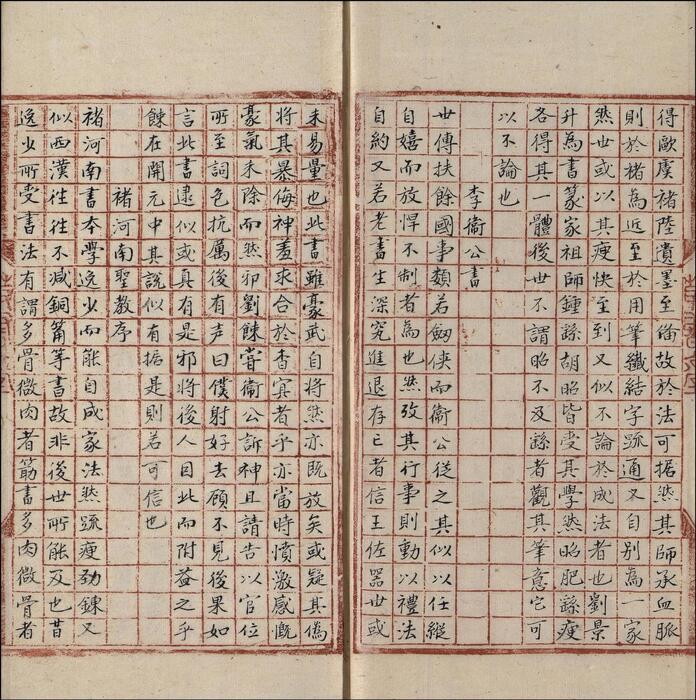 得歐虞褚陸遺墨至備故於法可據然其師承血脈
則於褚為近至於用筆纖結字疏通又自別為一家
然世或以其瘦快至到又似不論於成法者也劉景
升為書篆家祖師鍾繇胡昭皆受其學然昭肥繇瘦
各得其一體後世不謂昭不及繇者觀其筆意它可
以不論也
李衛公書
世傳扶餘國事類若劔俠而衛公從之其似以任縱
自嬉而放悍不制者為也然攷其行事則動以禮法
自約又若老書生深究進退存亡者信王佐器世或
未易量也此書雖豪武自將然亦既放矣或疑其偽
將其暴侮神羞求合於杳冥者乎亦當時憤激感慨
豪氣未除而然邪劉餗嘗衛公訴神且請告以官位
所至詞色抗厲後有声曰僕射好去顧不見後果如
言此書逮似或真有是邪將後人因此而附益之乎
餗在開元中其說似有据是則若可信也
褚河南聖教序
褚河南書本學逸少而能自成家法然疏瘦勁鍊又
似西漢往往不減銅筩等書故非後世所能及也昔
逸少所受書法有謂多骨微肉者筋書多肉微骨者